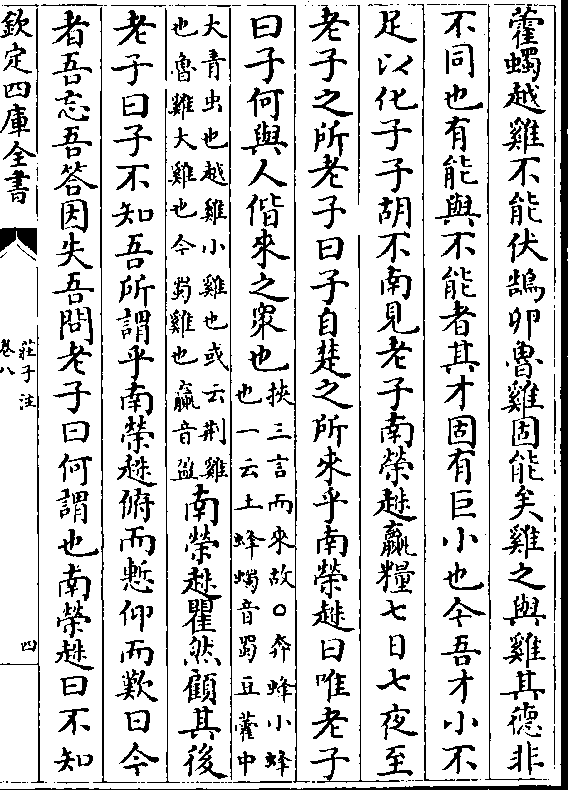 藿蠋越雞不能伏鵠卵魯雞固能矣雞之與雞其德非
不同也有能與不能者其才固有巨小也今吾才小不
足以化子子胡不南見老子南榮趎贏糧七日七夜至
老子之所老子曰子自楚之所來乎南榮趎曰唯老子
曰子何與人偕來之衆也
挾三言而來故○奔蜂小蜂
也一云土蜂蠋音蜀豆藿中
大青虫也越雞小雞也或云荆雞
也魯雞大雞也今蜀雞也贏音盈
南榮趎瞿然顧其後
老子曰子不知吾所謂乎南榮趎俯而慙仰而歎曰今
者吾忘吾答因失吾問老子曰何謂也南榮趎曰不知
欽定四庫全書
莊子注
卷八
四